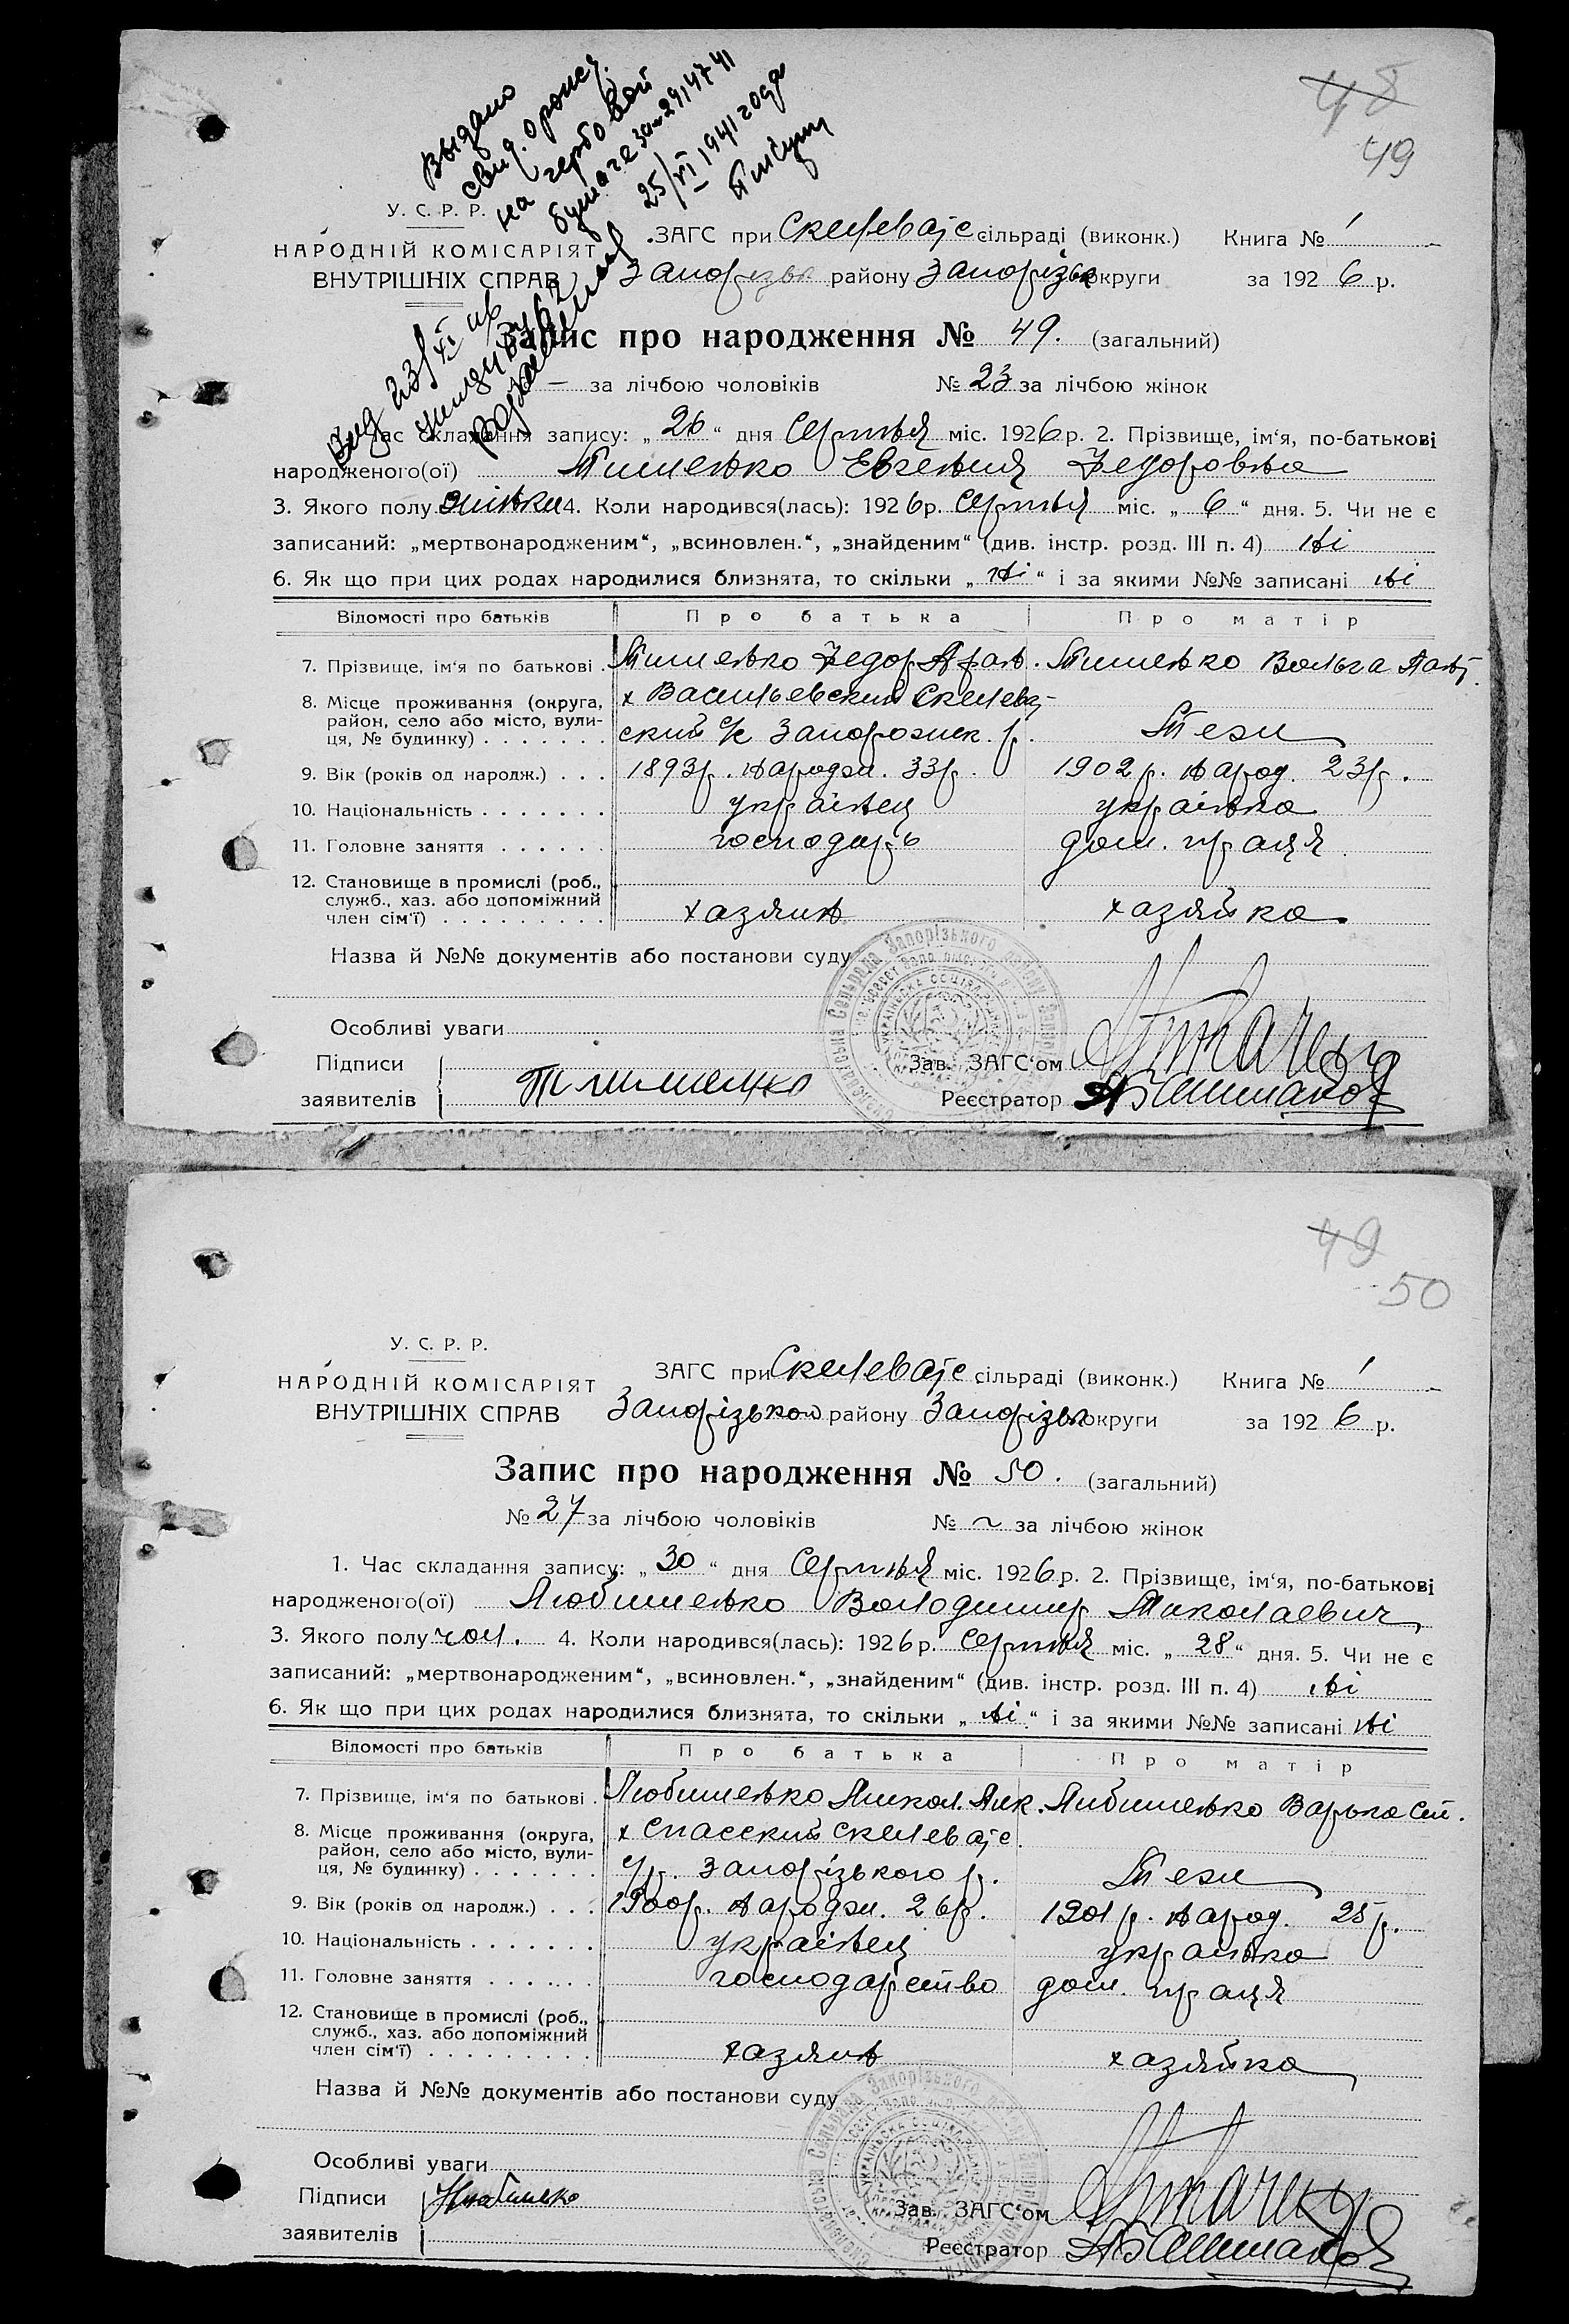 48
49
Выдано
свид. о рожд.
на гербовой
бумаге за № 2914741
25/VI 1941 года
У. С. Р. Р.
НАРОДНІЙ КОМІСАРІЯТ
ВНУТРІШНІХ СПРАВ
ЗАГС при Скелеват сільраді (виконк.) Книга № 1
Запорізьк району Запорізьк округи за 1926 р.
Запис про народження № 49. (загальний)
— за лічбою чоловіків № 23 за лічбою жінок
Час складання запису: „26“ дня Серпня міс. 1926 р. 2. Прізвище, ім‘я, по-батькові
народженого(ої) Тишенко Евгения Федоровна
3. Якого полу жінки 4. Коли народився(лась): 1926 р. Серпня міс. „6“ дня. 5. Чи не є
записаний: „мертвонародженим“, „всиновлен.“, „знайденим“ (див. інстр. розд. III п. 4) Ні
6. Як що при цих родах народилися близнята, то скільки „Ні“ і за якими №№ записані Ні
Відомості про батьків Про батька Про матір
7. Прізвище, ім‘я по батькові . Тишенко Федор Афан. Тишенко Вольга Пант.
8. Місце проживання (округа, район, село або місто, вулиця, № будинку) х Васильевский Скелевский с/с Запорожск. р. Теж
9. Вік (років од народж.) . . . 1893р. народж. 33р. 1902 р. народ. 23р.
10. Національність українец українка
11. Головне заняття господарь дом. праця
12. Становище в промислі (роб., служб., хаз. або допоміжний член сім‘ї) хазяин хазяйка
Назва й №№ документів або постанови суду
Особливі уваги
Підписи заявителів Тишенко
Зав. ЗАГС‘ом
Реєстратор
49
50
У. С. Р. Р.
НАРОДНІЙ КОМІСАРІЯТ
ВНУТРІШНІХ СПРАВ
ЗАГС при Скелеват сільраді (виконк.) Книга № 1
Запорізького району Запорізьк округи за 1926 р.
Запис про народження № 50. (загальний)
№ 27 за лічбою чоловіків № ~ за лічбою жінок
1. Час складання запису: „30“ дня Серпня міс. 1926 р. 2. Прізвище, ім‘я, по-батькові
народженого(ої) Любименко Володимир Миколаевич
3. Якого полу чол. 4. Коли народився(лась): 1926 р. Серпня міс. „28“ дня. 5. Чи не є
записаний: „мертвонародженим“, „всиновлен.“, „знайденим“ (див. інстр. розд. III п. 4) Ні
6. Як що при цих родах народилися близнята, то скільки „Ні“ і за якими №№ записані Ні
Відомості про батьків Про батька Про матір
7. Прізвище, ім‘я по батькові . Любименко Микол. Любименко Варька Сем.
8. Місце проживання (округа, район, село або місто, вулиця, № будинку) х Спасский Скелеват с/р. Запорізького р. Теж
9. Вік (років од народж.) . . . 1900р. народж. 26р. 1901 р. народ. 25 р.
10. Національність українец українка
11. Головне заняття господарство дом. праця
12. Становище в промислі (роб., служб., хаз. або допоміжний член сім‘ї) хазяин хазяйка
Назва й №№ документів або постанови суду
Особливі уваги
Підписи заявителів
Зав. ЗАГС‘ом
Реєстратор